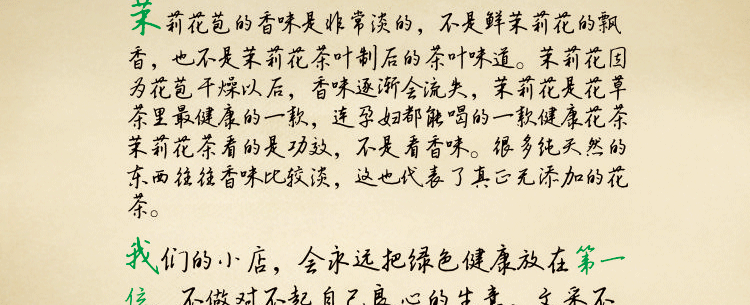 茉莉花苞的香味是非常淡的，不是鲜茉莉花的飘
香，也不是茉莉花茶叶制后的茶叶味道。茉莉花因
为花苞干燥以后，香味逐渐会流失，茉莉花是花草
茶里最健康的一款，连孕妇都能喝的一款健康花茶
茉莉花茶看的是功效，不是看香味。很多纯天然的
东西往往香味比较淡，这也代表了真正无添加的花
茶。
我们的小店，会永远把绿色健康放在第一
位 不做对不起自己良心的生意，文采不